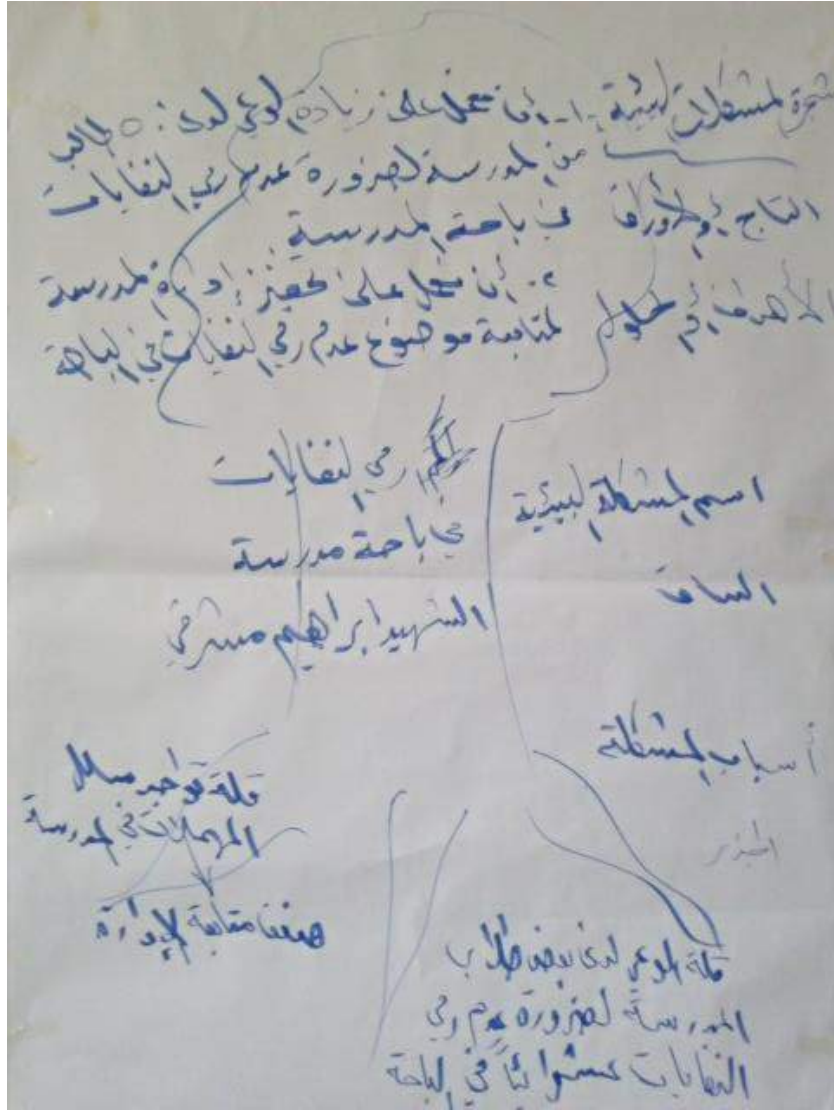 شجرة المشكلات البيئية
١- أن نعمل على زيادة الوعي لدى: ٥ طالب
من المدرسة لضرورة عدم رمي النفايات
في باحة المدرسة
التاج أو الأوراق
٢- أن نعمل على تحفيز إدارة المدرسة
لمتابعة موضوع عدم رمي النفايات في الباحة
الأهداف أو الحلول
رمي النفايات
في باحة مدرسة
الشهيد ابراهيم مشرفي
اسم المشكلة البيئية
الساق
أسباب المشكلة
الجذر
قلة تواجد سلال
المهملات في المدرسة
ضعف متابعة الإدارة
قلة الوعي لدى بعض طلاب
المدرسة لضرورة عدم رمي
النفايات عشوائياً في الباحة